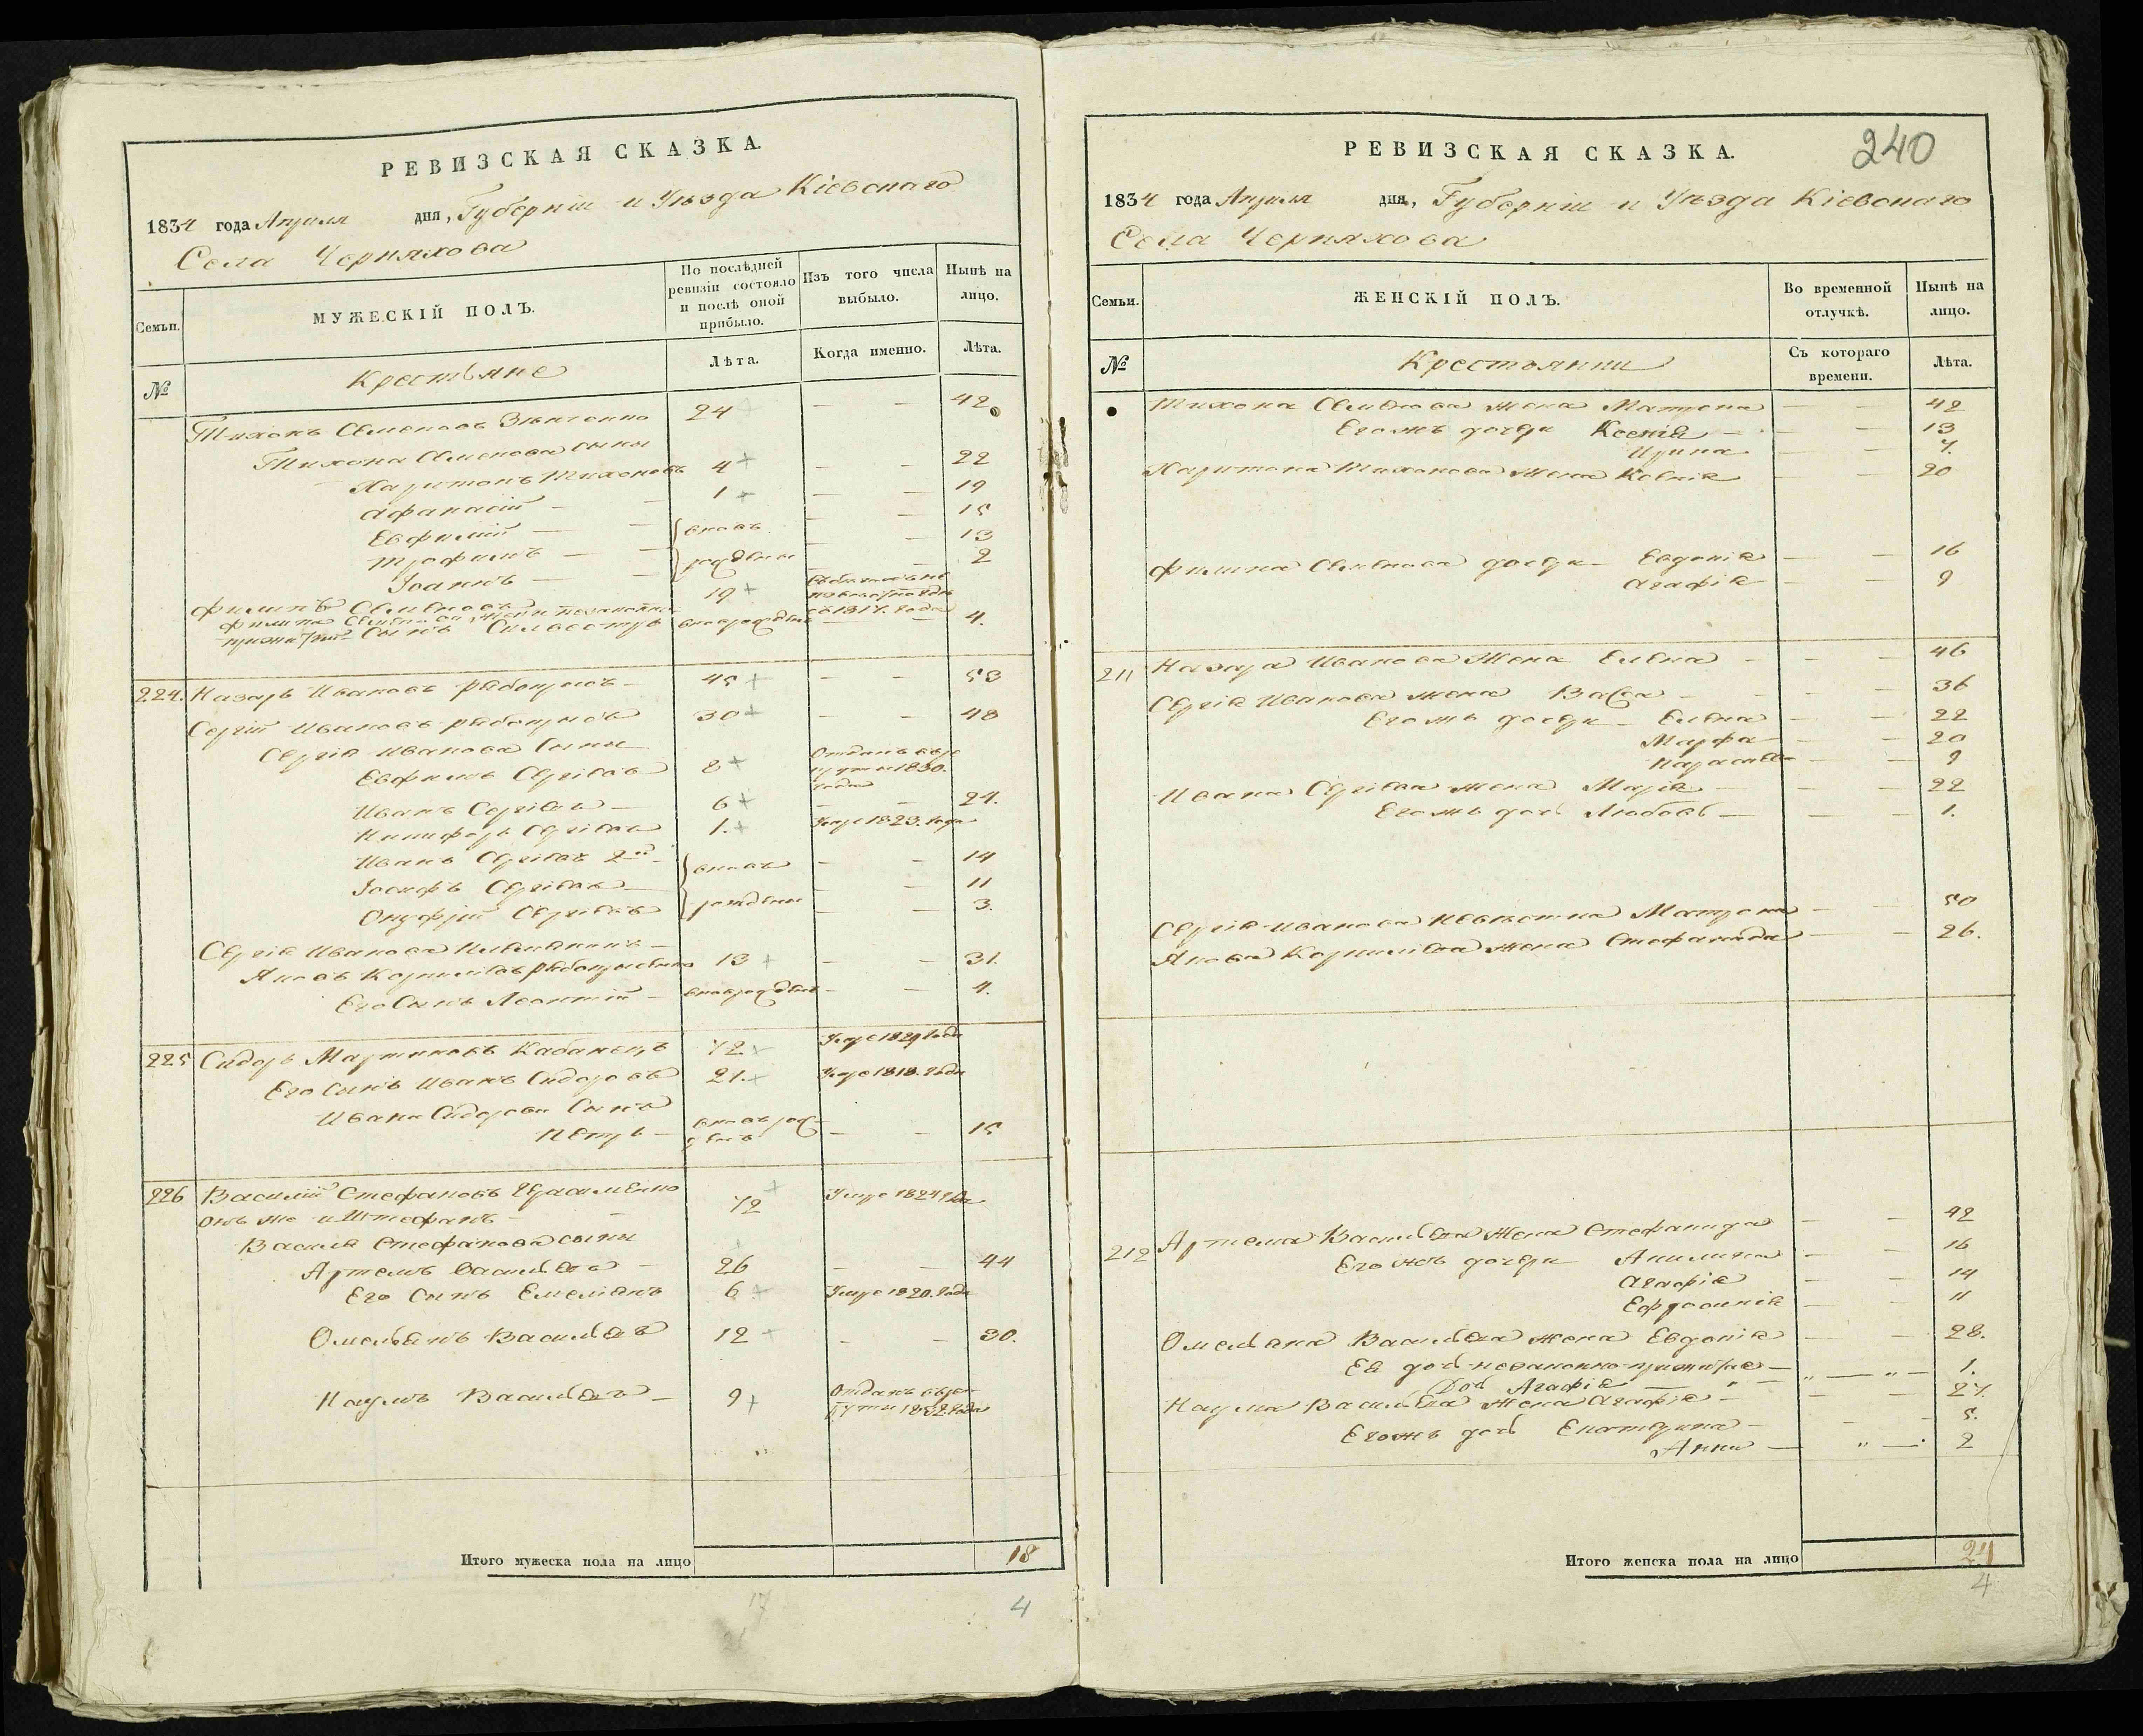 РЕВИЗСКАЯ СКАЗКА.
1834 года Апреля дня, Губерніи и Уезда Кіевскаго
Села Черняхова
Семьи.
МУЖЕСКІЙ ПОЛЪ.
По послѣдней ревизіи состояло и послѣ оной прибыло.
Изъ того числа выбыло.
Нынѣ на лицо.
№
Крестьяне
Лѣта.
Когда именно.
Лѣта.
Тихонъ Семеновъ 24 — — 42
Тихона Семенова сыны
Харитонъ Тихоновъ 4 — — 22
Афанасій — 1 — — 19
Евфимій — вновь — — 15
Трофимъ — рожденны — — 13
Іоаннъ — — — 2
Филипъ Семеновъ 19 съ 1817. года
Сынъ вноврожденъ — — 4.
224. Назаръ Ивановъ — 45 — — 53
Сергій Ивановъ 30 — — 48
Сергія Иванова Сыны
Евфимъ Сергіевъ 8 Отданъ въ рекруты 1830. года
Иванъ Сергіевъ — 6 — — 24.
Никифоръ Сергіевъ 1. Умре 1823. года
Иванъ Сергіевъ 2й — вновь — — 14
Іосифъ Сергіевъ — рожденны — — 11
Онуфрій Сергіевъ — — 3.
Сергія Иванова Племянникъ —
Яковъ Корниліевъ 13 — — 31.
Его Сынъ Леонтій — вноврожденъ — — 4.
225 Сидоръ Мартиновъ Кабанецъ 72 Умре 1829 года
Его Сынъ Иванъ Сидоровъ 21. Умре 1818. года
Ивана Сидорова Сынъ
Петръ — вновь рожденъ — — 15
226 Василій Стефановъ Герасименко 72 Умре 1824 года
онъ же и Штефанъ — —
Василя Стефанова сыны
Артемъ Васильевъ — 26 — — 44
Его Сынъ Емеліянъ 6 Умре 1820. года
Омельянъ Васильевъ 12 — — 30.
Наумъ Васильевъ — 9 Отданъ въ рекруты 1832 года
Итого мужеска пола на лицо 18
17
4
240
РЕВИЗСКАЯ СКАЗКА.
1834 года Апреля дня, Губерніи и Уезда Кіевскаго
Села Черняхова
Семьи.
ЖЕНСКІЙ ПОЛЪ.
Во временной отлучкѣ.
Нынѣ на лицо.
№
Крестьянки
Съ котораго времени.
Лѣта.
Тихона Семенова жена Матрона — — 42
Его жъ дочери Ксенія — — 13
Ирина — — 7.
Харитона Тихонова Жена Ксенія — — 20
Филипа Семенова дочери Евдокія — — 16
Агафія — — 9
211 Назара Иванова Жена Елена — — 46
Сергія Иванова жена Васса — — 36
Его жъ дочери — Елена — — 22
Марфа — — 20
9
Ивана Сергіева жена Марія — — 22
Его жъ дочь Любовь — — 1.
Сергія Иванова невѣстка Матрона — — 50
Якова Корниліева жена Стефанида — — 26.
212 Артема Васильева Жена Стефанида — — 42
Его жъ дочери Акилина — — 16
Агафія — — 14
Ефросинія — — 11
Омельяна Васильева жена Евдокія — — 28.
Ея дочь незаконно-прижитая — 1.
Дочь Агафія
Наума Васильева Жена Агафія — — 27.
Его жъ дочь Екатерина — — 5.
Анна — " — 2
Итого женска пола на лицо 24
4